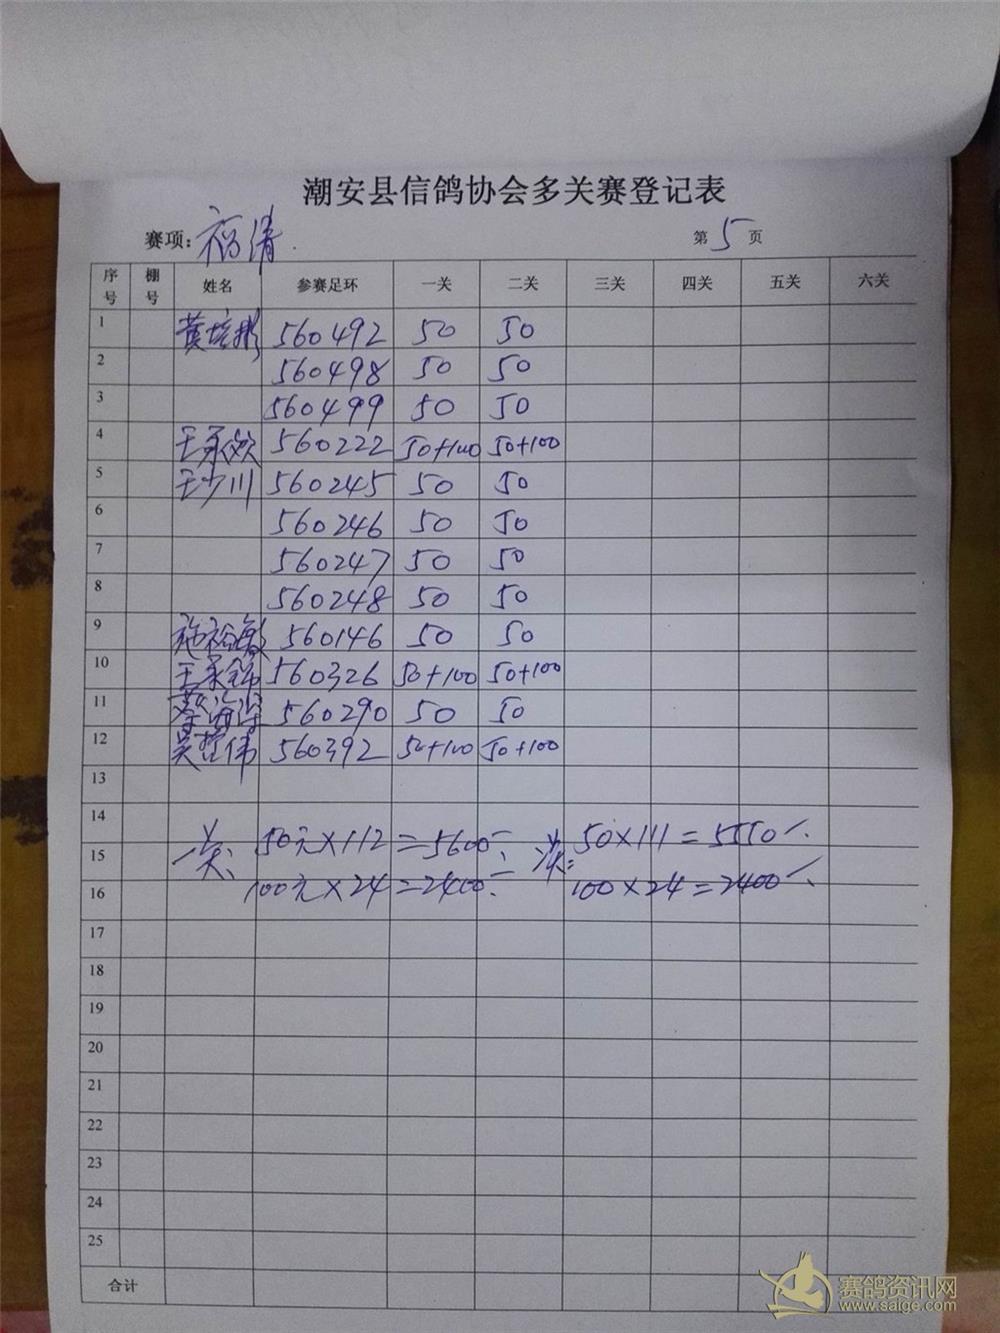 潮安县信鸽协会多关赛登记表
赛项：福清. 第5页
序号 棚号 姓名 参赛足环 一关 二关 三关 四关 五关 六关
1 黄培彬 560492 50 50
2 560498 50 50
3 560499 50 50
4 王承欢 560222 50+100 50+100
5 王少川 560245 50 50
6 560246 50 50
7 560247 50 50
8 560248 50 50
9 施裕敏 560146 50 50
10 王承锦 560326 50+100 50+100
11 蔡海深 560290 50 50
12 吴哲伟 560392 50+100 50+100
13
14
15 一关: 50元×112=5600 关: 50×111=5550
16 100元×24=2400 100×24=2400
17
18
19
20
21
22
23
24
25
合计
赛鸽资讯网
www.saige.com